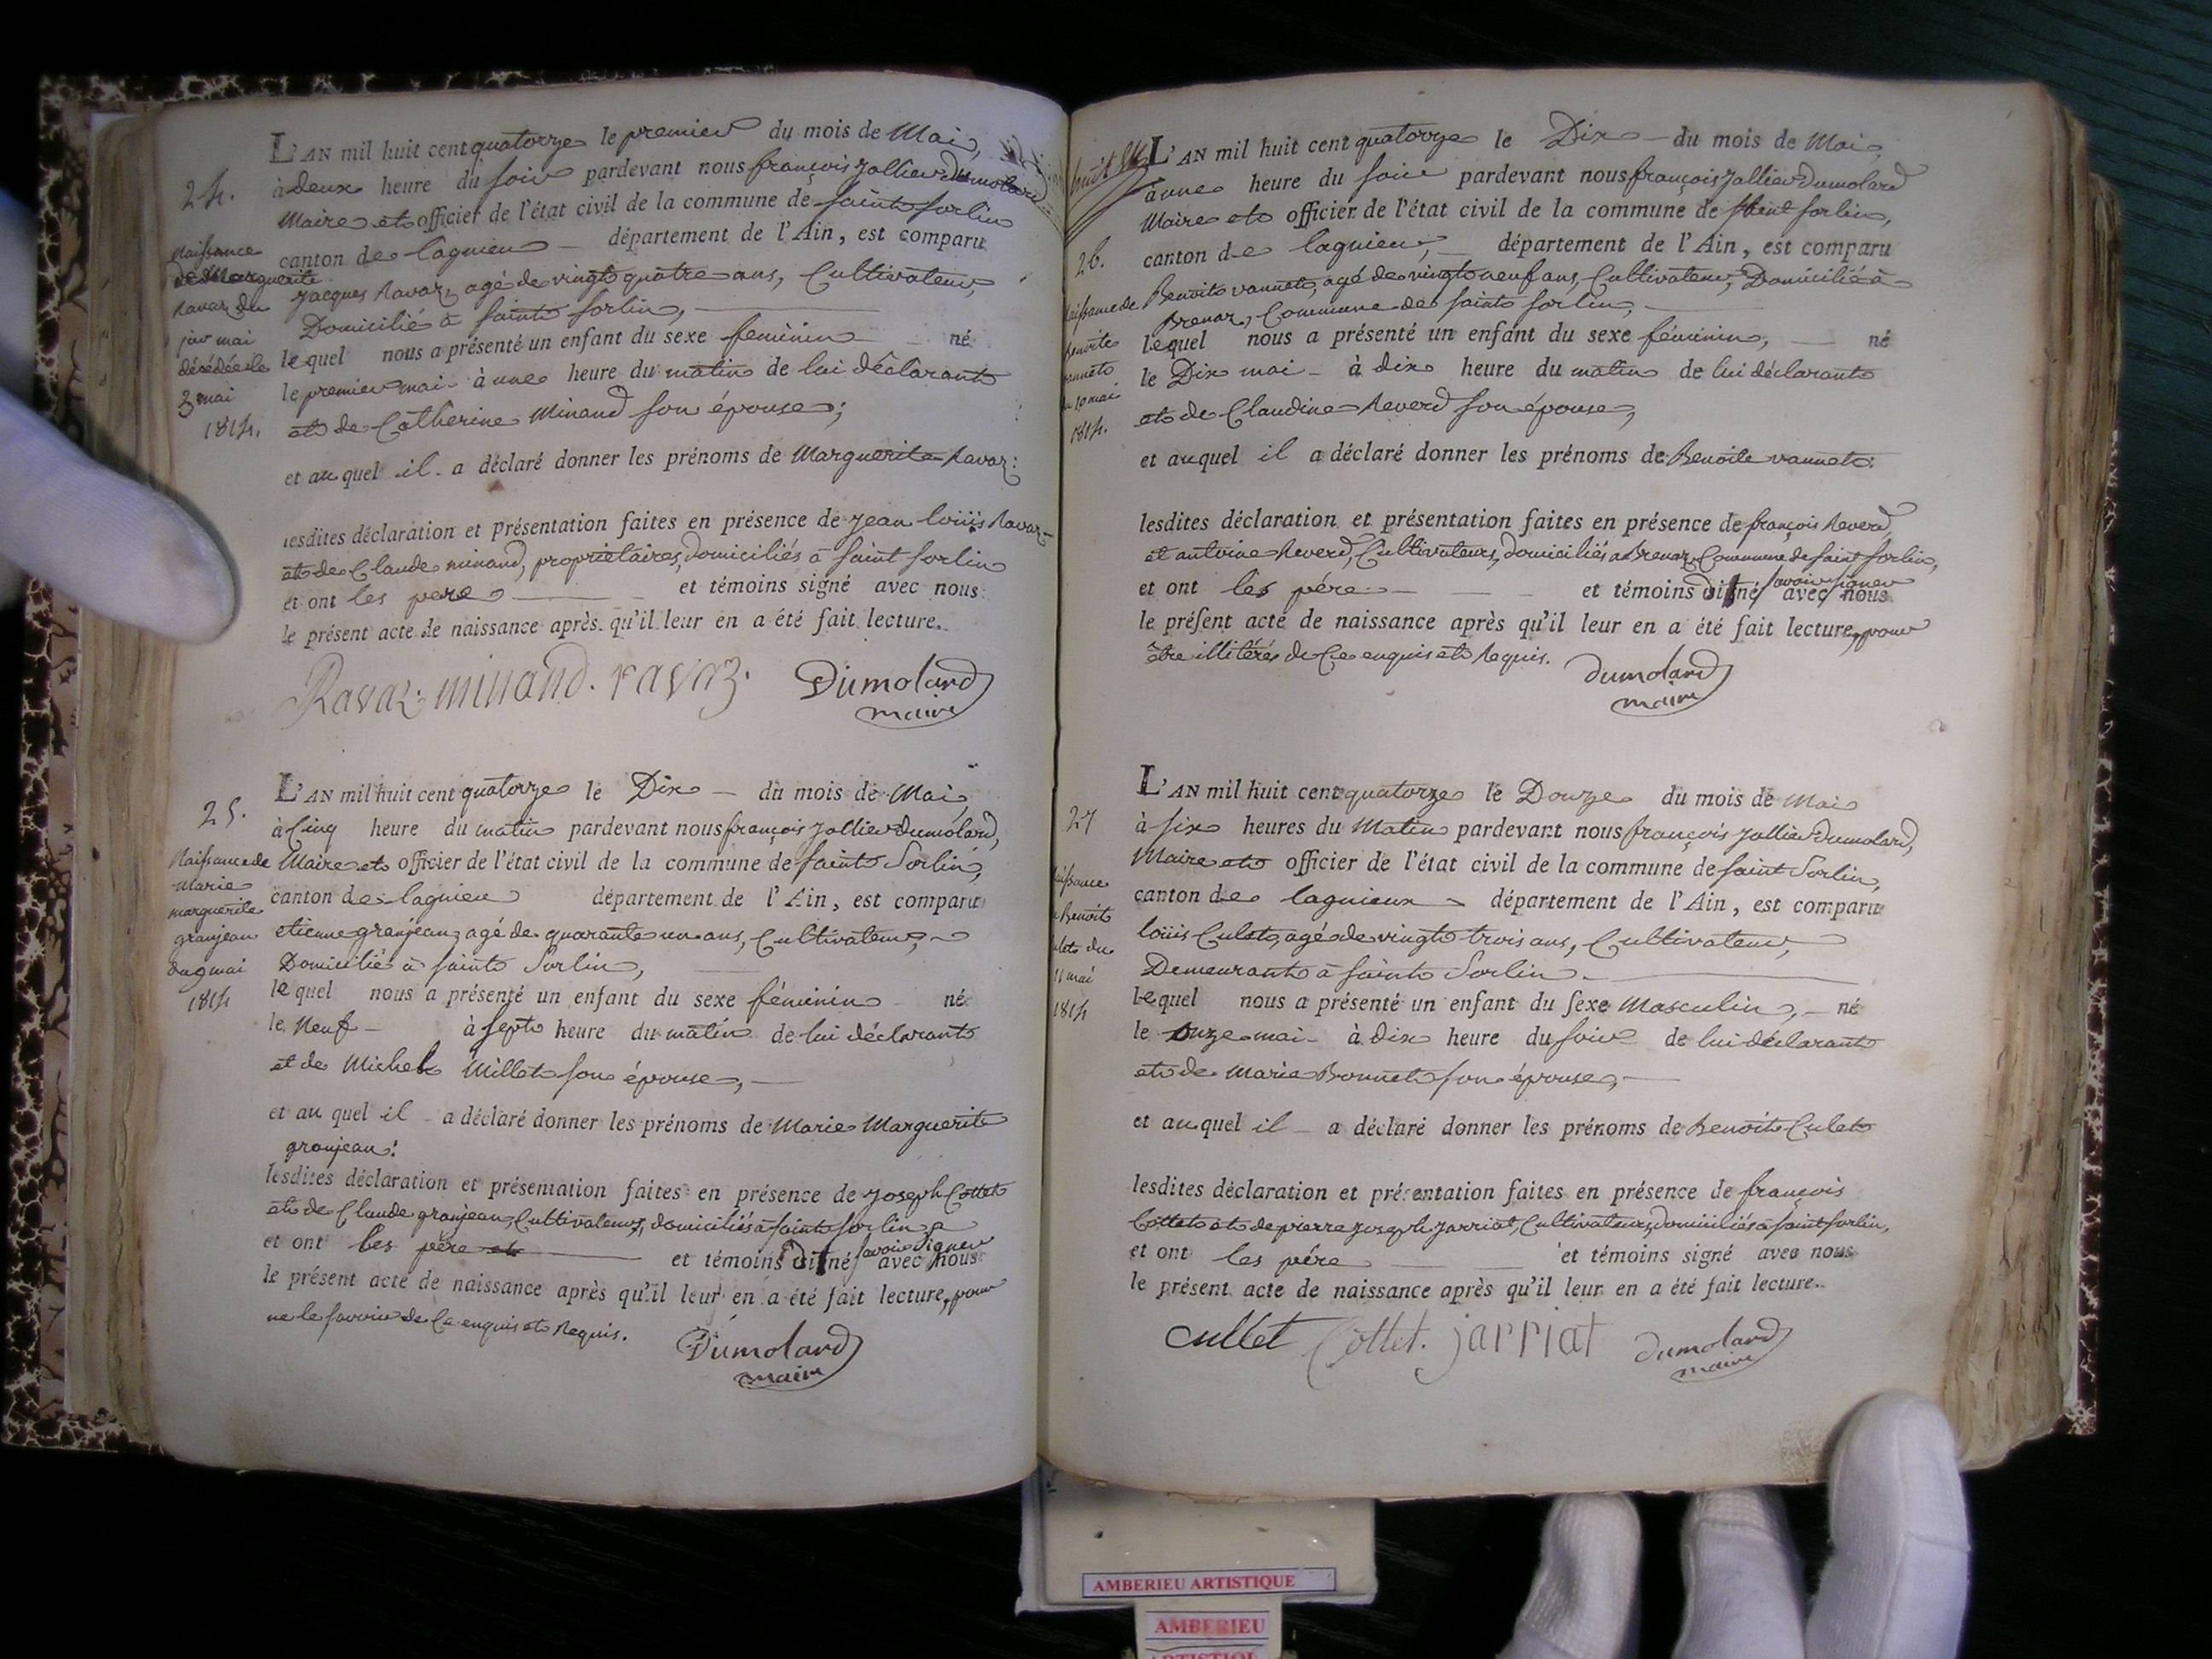 24.
Naissance
de Marguerite
Ravaz du
1er mai
décédée le
3 mai
1814.
L'AN mil huit cent quatorze le premier du mois de Mai,
à deux heure du soir pardevant nous françois Jollier Dumolard
Maire et officier de l'état civil de la commune de saint sorlin
canton de lagnieu département de l'Ain, est comparu
Jacques Ravaz, agé de vingt quatre ans, Cultivateur,
Domicilié à saint sorlin,
lequel nous a présenté un enfant du sexe féminin né
le premier mai à une heure du matin de lui déclarant
et de Catherine Minand son épouse;
et auquel il a déclaré donner les prénoms de Marguerite Ravaz:
lesdites déclaration et présentation faites en présence de jean loüis Ravaz
et de Claude minand, propriétaires, domiciliés à saint sorlin
et ont les père et témoins signé avec nous
le présent acte de naissance après qu'il leur en a été fait lecture.
Ravaz. minand. ravaz. Dumolard
maire
25.
Naissance de
Marie
marguerite
granjean
du 9 mai
1814
L'AN mil huit cent quatorze le Dix du mois de Mai,
à Cinq heure du matin pardevant nous françois Jollier Dumolard,
Maire et officier de l'état civil de la commune de saint Sorlin,
canton de lagnieu département de l'Ain, est comparu
etienne granjean, agé de quarante un ans, Cultivateur,
Domicilié à saint Sorlin,
lequel nous a présenté un enfant du sexe féminin né
le Neuf à sept heure du matin de lui déclarant
et de Michel Millet son épouse,
et au quel il a déclaré donner les prénoms de Marie Marguerite
granjean:
lesdites déclaration et présentation faites en présence de joseph Cottet
et de Claude granjean, Cultivateurs, domiciliés à saint sorlin
et ont les père et témoins dit né savoir signer avec nous
le présent acte de naissance après qu'il leur en a été fait lecture, pour
ne le savoir de Ce enquis et Requis.
Dumolard
maire
huit
26.
Naissance de
Benoite
vannet
du 10 mai
1814.
L'AN mil huit cent quatorze le Dix du mois de Mai,
à une heure du soir pardevant nous françois Jollier Dumolard
Maire et officier de l'état civil de la commune de saint sorlin,
canton de lagnieu, département de l'Ain, est comparu
Benoit vannet, agé de vingt neuf ans, Cultivateur, Domicilié à
Brenaz, Commune de saint sorlin,
lequel nous a présenté un enfant du sexe féminin, né
le Dix mai à dix heure du matin de lui déclarant
et de Claudine Reverd son épouse,
et auquel il a déclaré donner les prénoms de Benoite vannet:
lesdites déclaration et présentation faites en présence de françois Reverd,
et antoine Reverd, Cultivateurs, domiciliés a Brenaz, Commune de saint sorlin,
et ont les père et témoins dit né savoir signer avec nous
le présent acte de naissance après qu'il leur en a été fait lecture, pour
être illitérés de Ce enquis et Requis.
dumolard
maire
27
Naissance
de Benoit
Culet du
11 mai
1814
L'AN mil huit cent quatorze le Douze du mois de Mai
à six heures du Matin pardevant nous françois Jollier Dumolard,
Maire et officier de l'état civil de la commune de saint Sorlin,
canton de lagnieux département de l'Ain, est comparu
loüis Culet, agé de vingt trois ans, Cultivateur,
Demeurant à saint Sorlin
lequel nous a présenté un enfant du sexe Masculin, né
le onze mai à dix heure du soir de lui déclarant
et de Marie Bonnet son épouse,
et auquel il a déclaré donner les prénoms de Benoit Culet
lesdites déclaration et présentation faites en présence de françois
Cottet et de pierre joseph jarriat, Cultivateurs, domiciliés à saint sorlin,
et ont les père et témoins signé avec nous
le présent acte de naissance après qu'il leur en a été fait lecture.
Cullet Cottet. jarriat dumolard
maire
AMBERIEU ARTISTIQUE
AMBERIEU
ARTISTIQUE